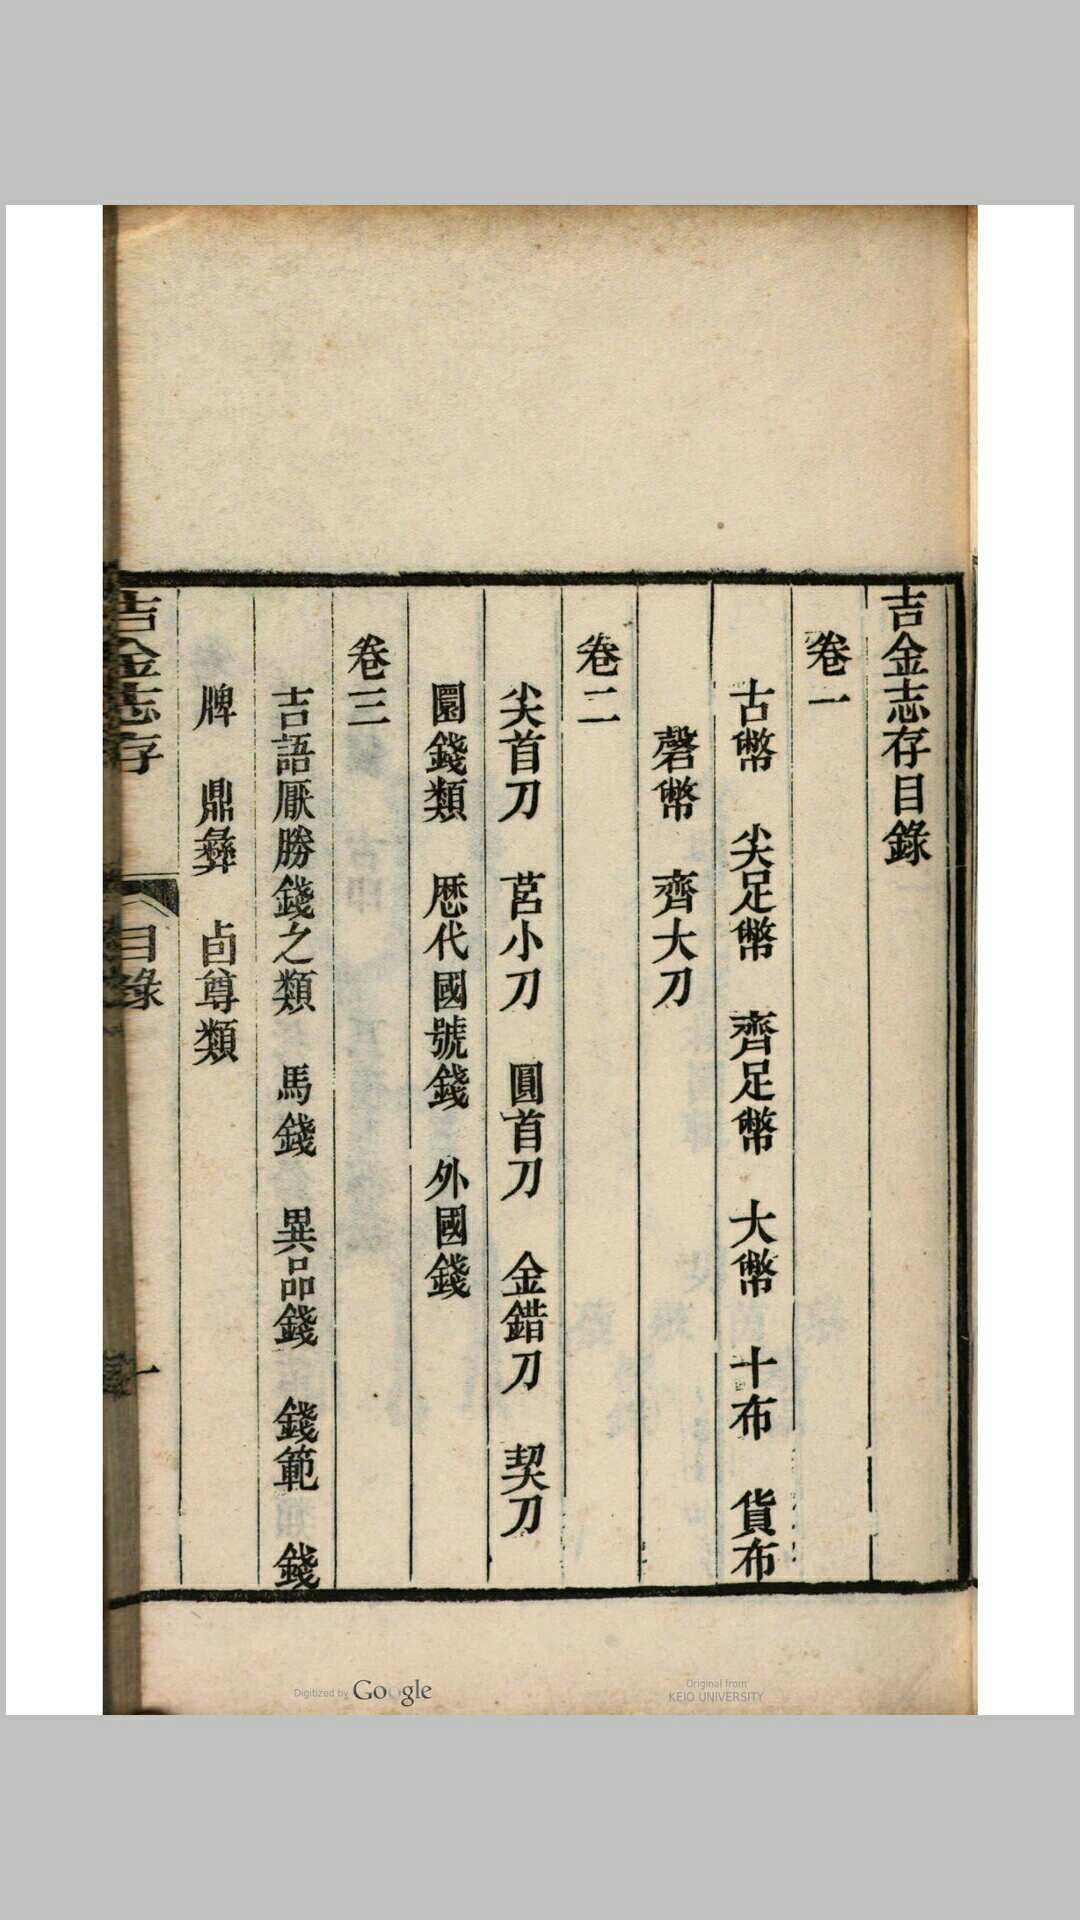 吉金志存目錄
卷一
古幣　尖足幣　齊足幣　大幣　十布　貨布
磬幣　齊大刀
卷二
尖首刀　莒小刀　圓首刀　金錯刀　契刀
圜錢類　歷代國號錢　外國錢
卷三
吉語厭勝錢之類　馬錢　異品錢　錢範　錢
牌　鼎彝　卣尊類
吉金志存
目錄
一
Digitized by Google
Original from
KEIO UNIVERSITY